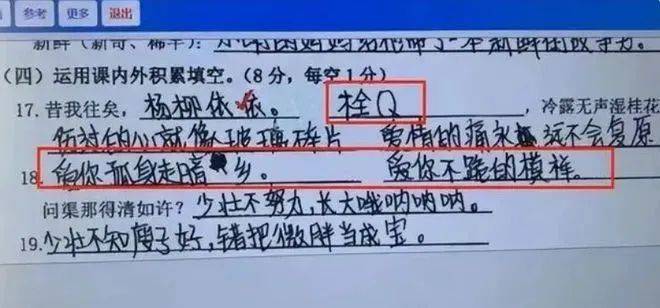 参考 更多 退出
新鲜（新奇、稀罕）：
（四）运用课内外积累填空。（8分，每空1分）
17. 昔我往矣，杨柳依依。 栓Q ，冷露无声湿桂花
伤过的心就像玻璃碎片 爱情的痛永远不会复原
18. 爱你孤身走暗乡。 爱你不跪的模样。
问渠那得清如许？少壮不努力，长大哦呐呐呐。
19. 少壮不知瘦子好，错把微胖当成宝。